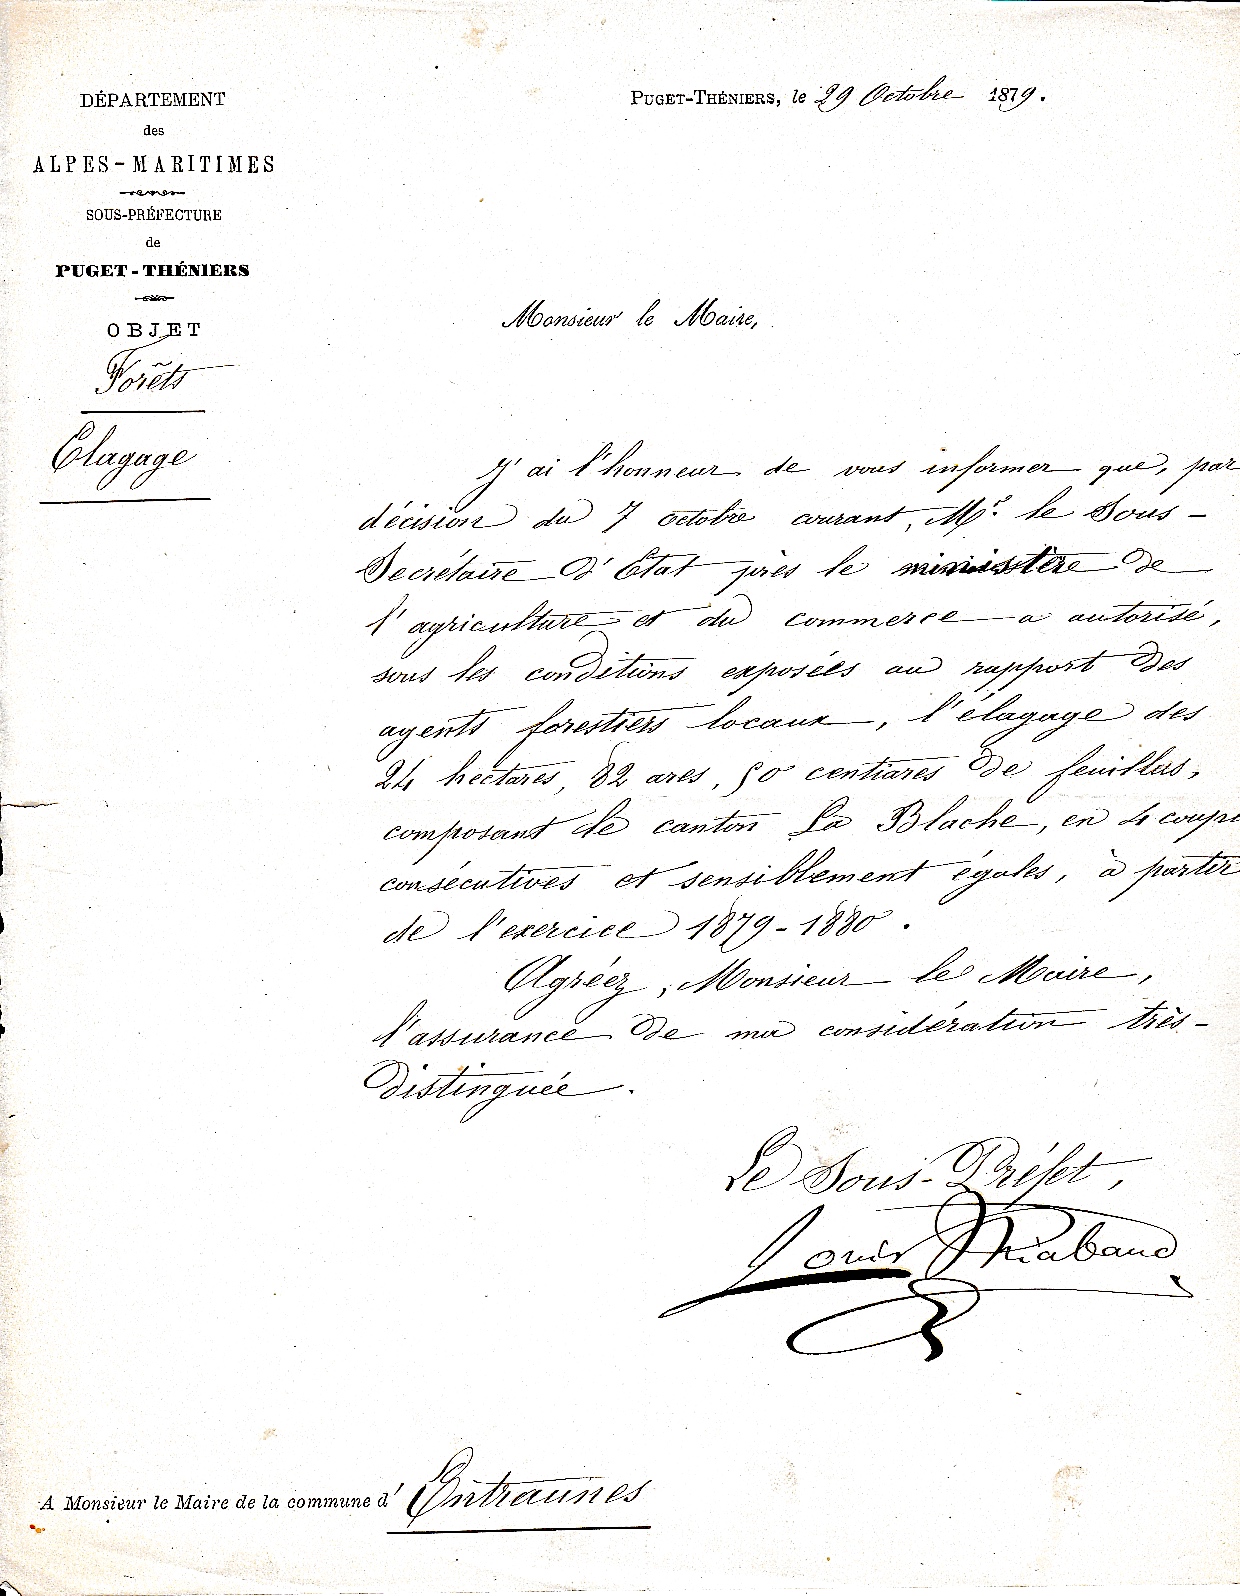 DÉPARTEMENT
des
ALPES-MARITIMES
SOUS-PRÉFECTURE
de
PUGET-THÉNIERS
OBJET
Forêts
Elagage
PUGET-THÉNIERS, le 29 Octobre 1879.
Monsieur le Maire,
J'ai l'honneur de vous informer que, par
décision du 7 octobre courant, Mr. le Sous-
Secrétaire d'Etat près le ministère de
l'agriculture et du commerce a autorisé,
sous les conditions exposées au rapport des
agents forestiers locaux, l'élagage des
24 hectares, 82 ares, 50 centiares de feuillus,
composant le canton La Blache, en 4 coupe
consécutives et sensiblement égales, à partir
de l'exercice 1879-1880.
Agréez, Monsieur le Maire,
l'assurance de ma considération très-
distinguée.
Le Sous-Préfet,
Louis
A Monsieur le Maire de la commune d'Entraunes